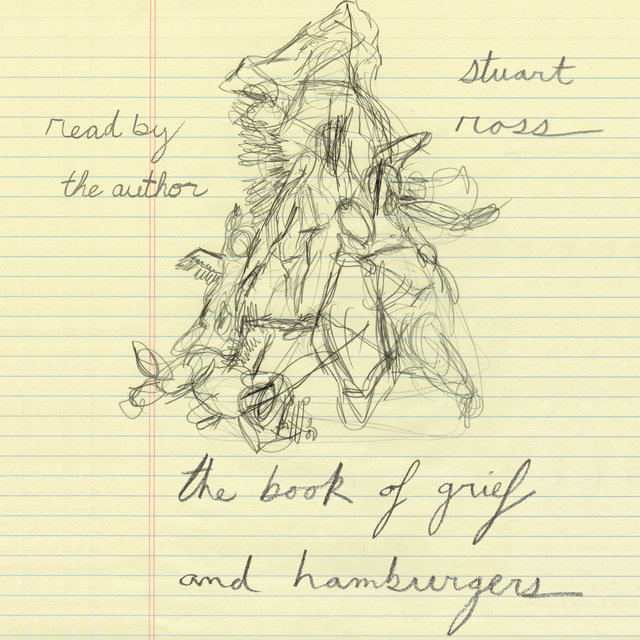 stuart
ross
read by
the author
the book of grief
and hamburgers